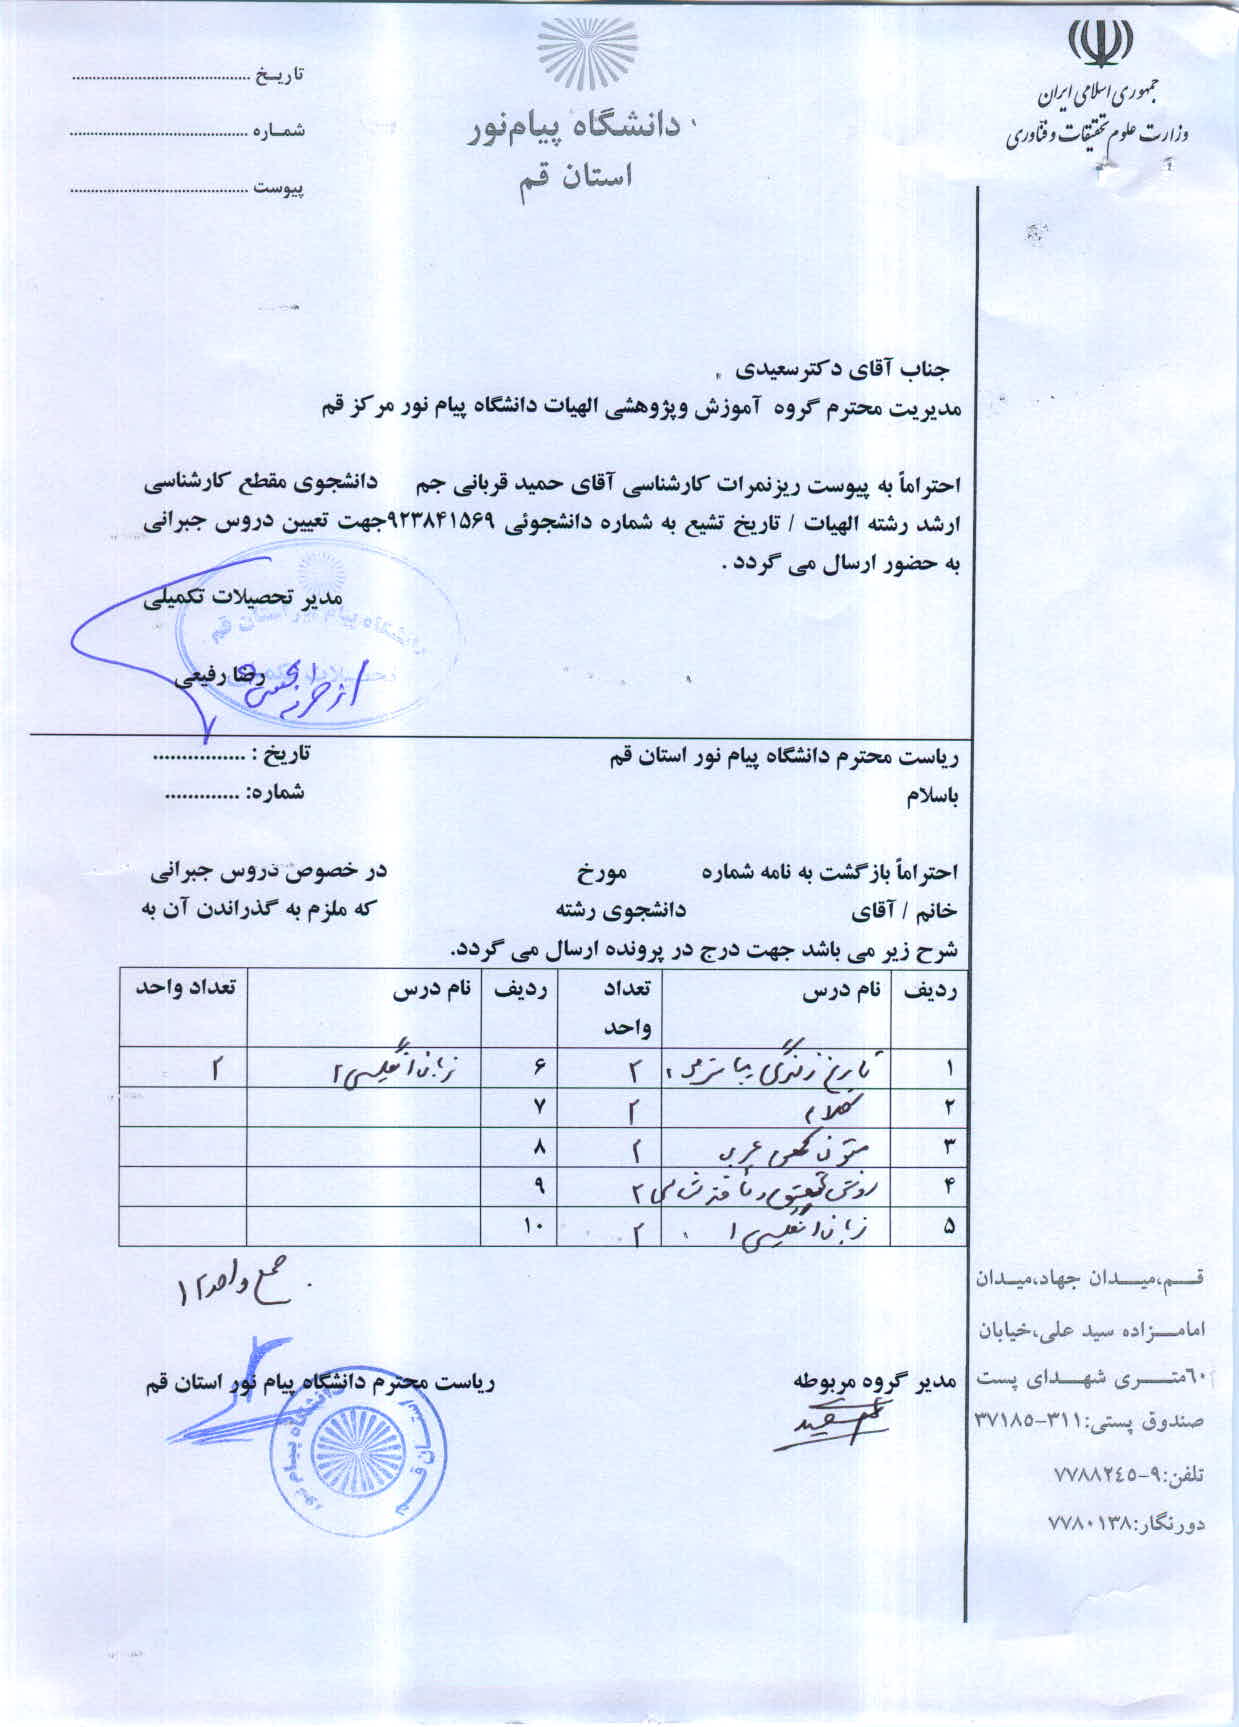 جمهوری اسلامی ایران
وزارت علوم تحقیقات و فناوری
دانشگاه پیام‌نور
استان قم
تاریـخ ..........................................
شمـاره ..........................................
پیوست ..........................................
جناب آقای دکترسعیدی
مدیریت محترم گروه آموزش وپژوهشی الهیات دانشگاه پیام نور مرکز قم
احتراماً به پیوست ریزنمرات کارشناسی آقای حمید قربانی جم دانشجوی مقطع کارشناسی
ارشد رشته الهیات / تاریخ تشیع به شماره دانشجوئی ۹۲۳۸۴۱۵۶۹جهت تعیین دروس جبرانی
به حضور ارسال می گردد .
مدیر تحصیلات تکمیلی
رضا رفیعی
ریاست محترم دانشگاه پیام نور استان قم تاریخ : ................
باسلام شماره: .............
احتراماً بازگشت به نامه شماره مورخ در خصوص دروس جبرانی
خانم / آقای دانشجوی رشته که ملزم به گذراندن آن به
شرح زیر می باشد جهت درج در پرونده ارسال می گردد.
ردیف نام درس تعداد واحد ردیف نام درس تعداد واحد
۱ تاریخ زندگی ۲ ۶ زبان انگلیسی ۲ ۲
۲ کلام ۲ ۷
۳ متون عربی ۲ ۸
۴ روش تحقیق و ماخذ شناسی ۲ ۹
۵ زبان انگلیسی ۱ ۲ ۱۰
جمع واحد ۱۲
مدیر گروه مربوطه ریاست محترم دانشگاه پیام نور استان قم
دانشگاه پیام نور
استان قم
قـــم،میـــدان جهاد،میـدان
امامـــزاده سید علی،خیابان
٦٠متـــری شهـــدای پست
صندوق پستی:۳۱۱-۳۷۱۸۵
تلفن:۹-۷۷۸۸۲٤٥
دورنگار:۷۷۸۰۱۳۸